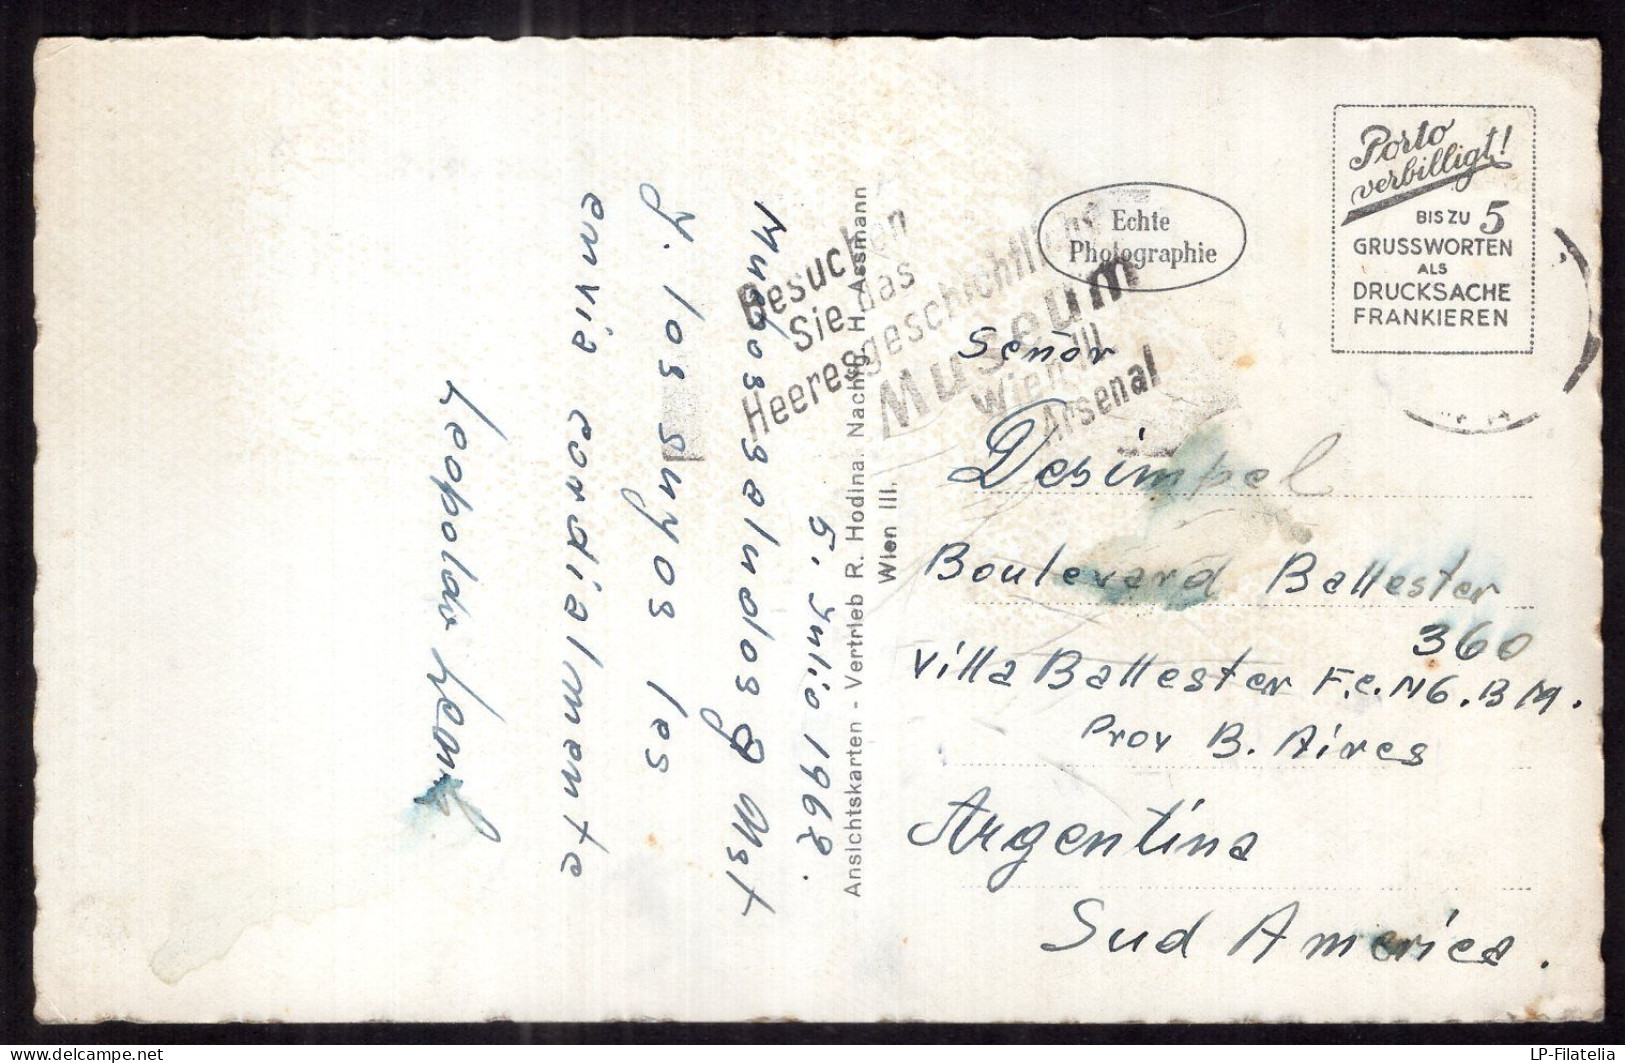 5. Julio 1962.
Muchos saludos y Mst
y. los suyos les
envia cordialmente
Leopoldo
Ansichtskarten - Vertrieb R. Hodina. Nachflg. H. Assmann
Wien III.
Besuchen
Sie das
Heeresgeschichtliche
Museum
Wien III
Arsenal
Echte
Photographie
Porto
verbilligt!
BIS ZU 5
GRUSSWORTEN
ALS
DRUCKSACHE
FRANKIEREN
Señor
Desimpel
Boulevard Ballester
360
Villa Ballester F.C.NG.BM.
Prov B. Aires
Argentina
Sud America.
LP-Filatelia
delcampe.net